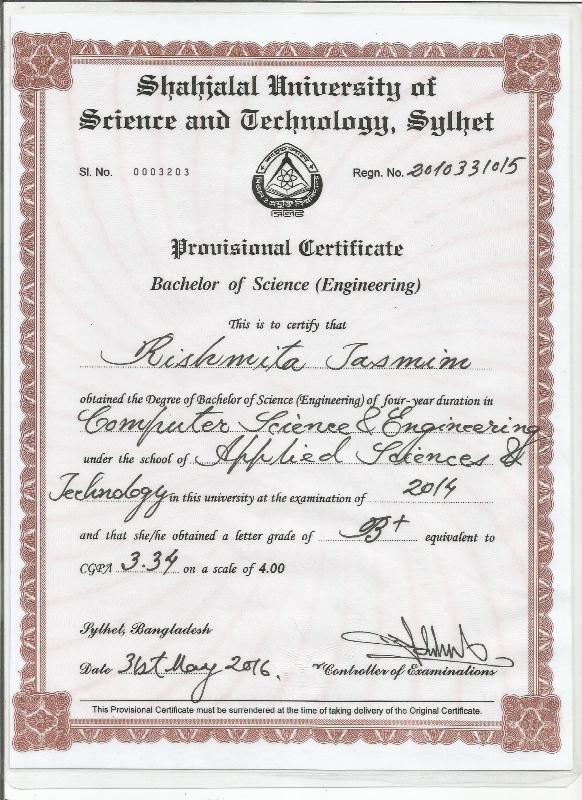 Shahjalal University of
Science and Technology, Sylhet
Sl. No. 0003203 Regn. No. 2010331015
Provisional Certificate
Bachelor of Science (Engineering)
This is to certify that
Rishmita Tasmim
obtained the Degree of Bachelor of Science (Engineering) of four-year duration in
Computer Science & Engineering
under the school of Applied Sciences &
Technology in this university at the examination of 2014
and that she/he obtained a letter grade of B+ equivalent to
CGPA 3.34 on a scale of 4.00
Sylhet, Bangladesh
Date 31st May 2016.
Controller of Examinations
This Provisional Certificate must be surrendered at the time of taking delivery of the Original Certificate.